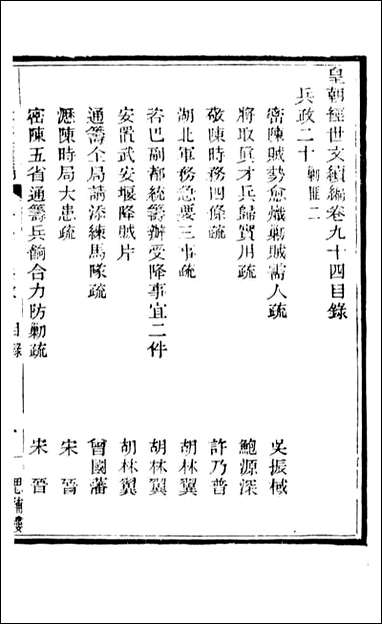 皇朝經世文續編卷九十四目錄
兵政二十 剿匪二
密陳賊勢愈熾剿賊需人疏 吳振棫
將取眞才兵歸實用疏 鮑源深
敬陳時務四條疏 許乃普
湖北軍務急要三事疏 胡林翼
咨巴副都統籌辦受降事宜二件 胡林翼
安置武安堰降賊片 胡林翼
通籌全局請添練馬隊疏 曾國藩
瀝陳時局大患疏 宋晉
密陳五省通籌兵餉合力防剿疏 宋晉
目錄 一 思補樓